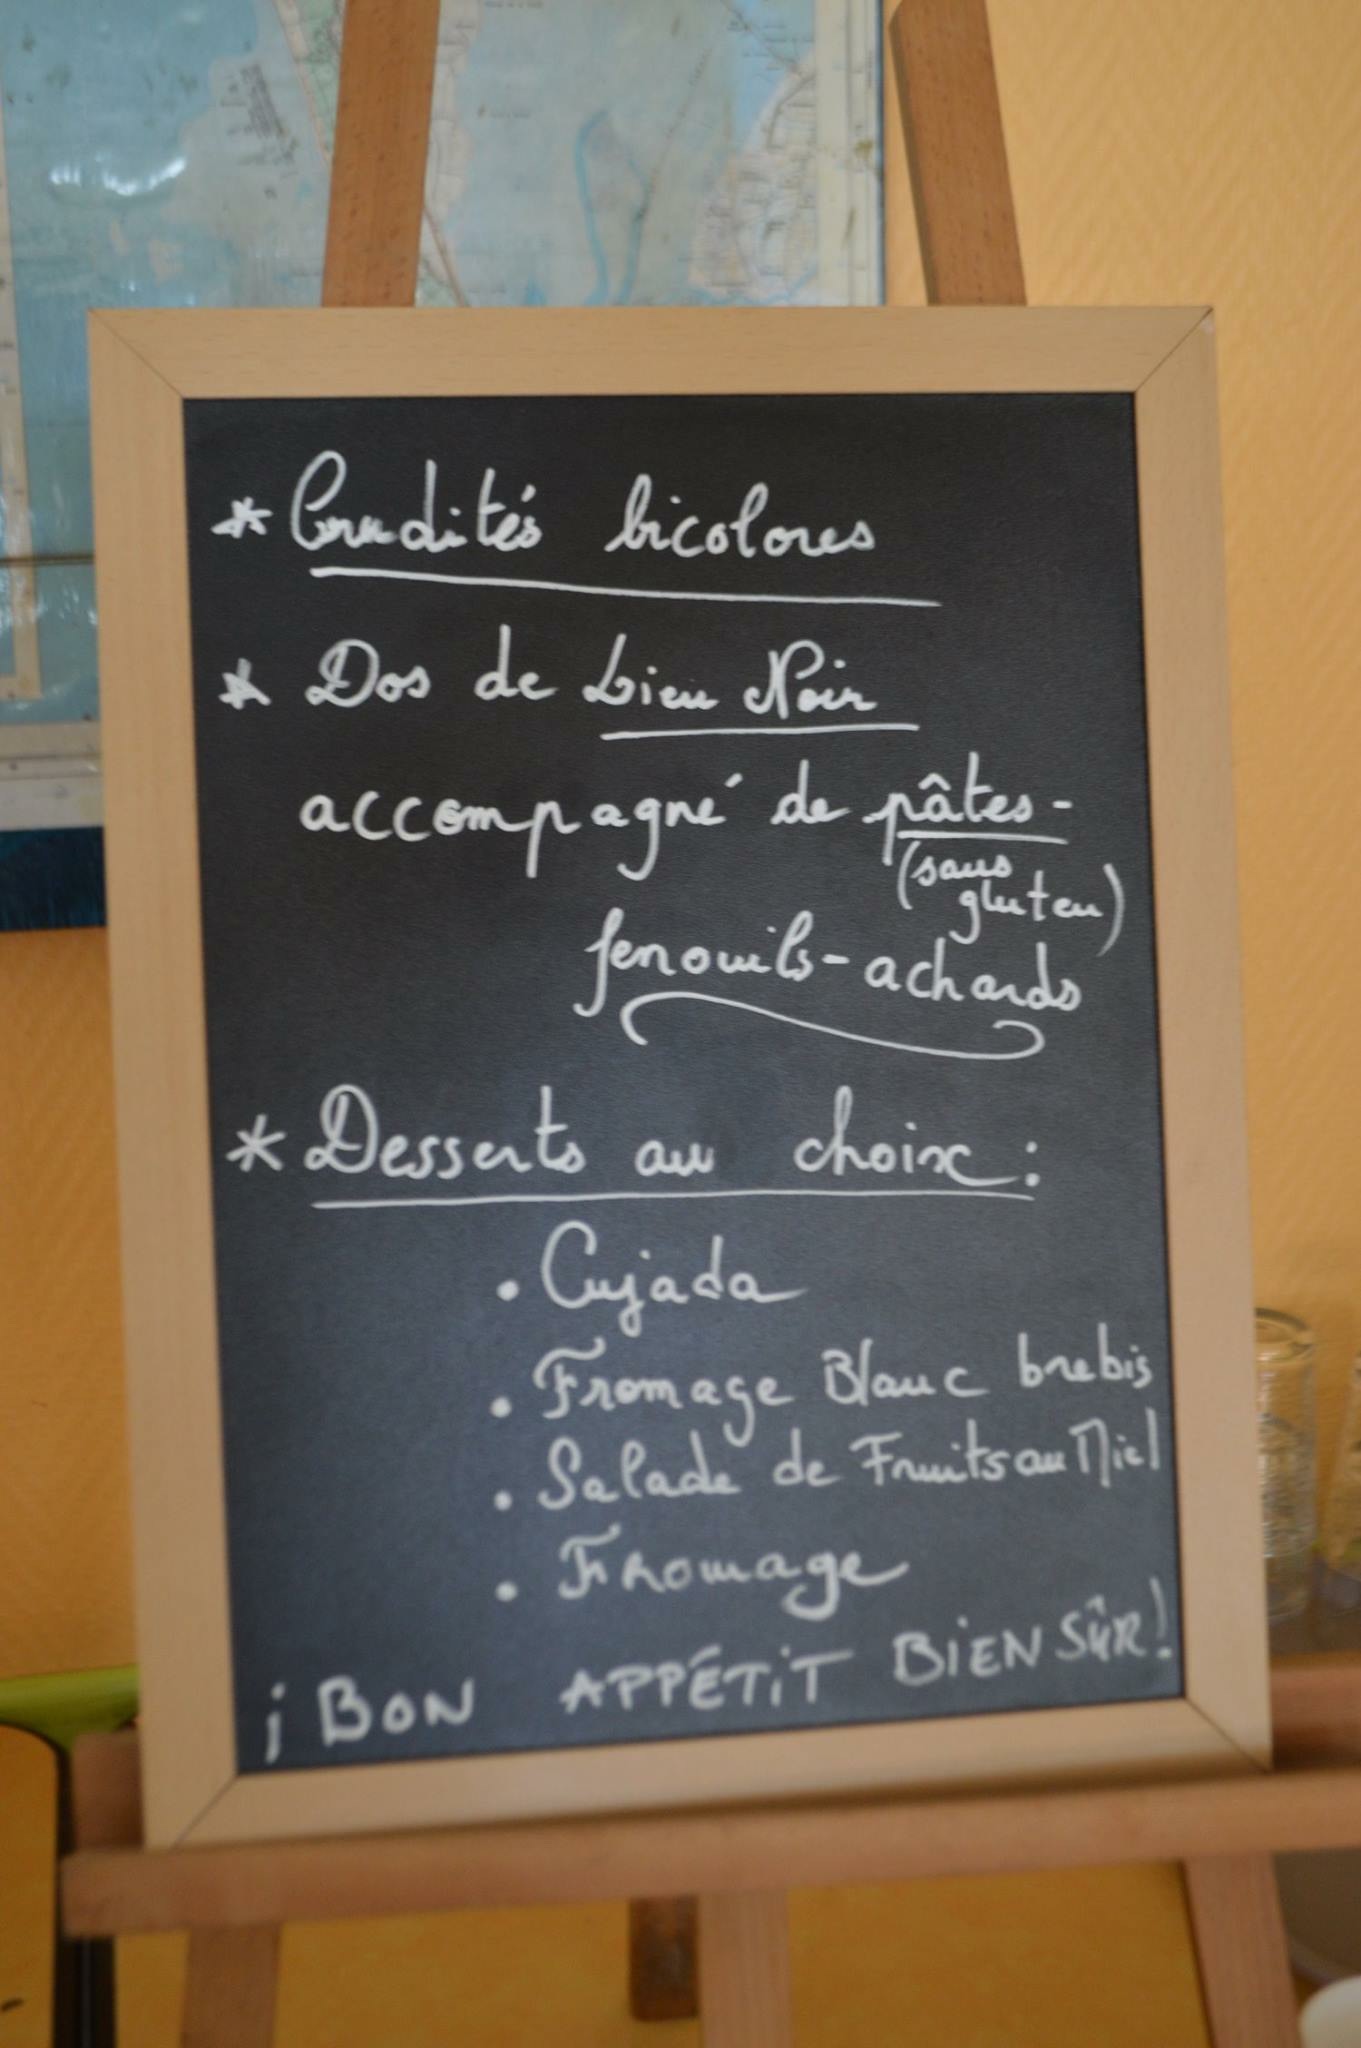 * Crudités bicolores
* Dos de Lieu Noir
accompagné de pâtes -
(sans
gluten)
fenouils - achards
* Desserts au choix :
• Cujada
• Fromage Blanc brebis
• Salade de Fruits au Miel
• Fromage
¡ BON APPÉTIT BIEN SÛR !